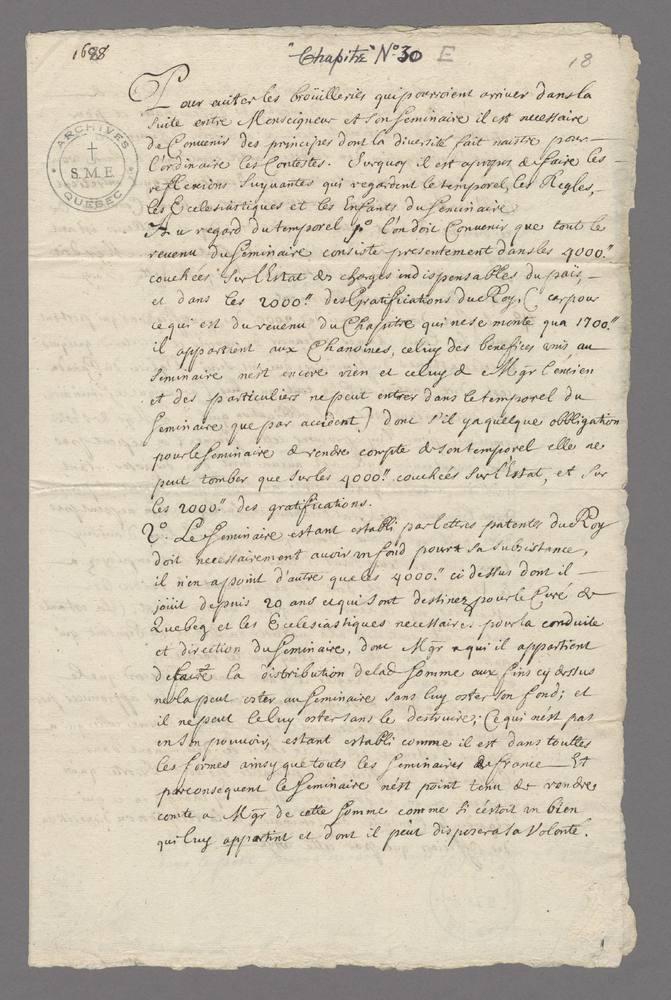 1688
"Chapitre" No 30 E
18
ARCHIVES
S.M.E.
QUEBEC
Pour eviter les broüilleries qui pourroient arriver dans la
suite entre Monseigneur et son Seminaire il est necessaire
de Convenir des principes dont la diversité fait naistre pour
l'ordinaire les Contestes. Surquoy il est apropos de faire les
reflexions suyuantes qui regardent le temporel, les Regles,
les Ecclesiastiques et les Enfants du Seminaire
Au regard du temporel po l'on doit Convenir que tout le
revenu du Seminaire consiste presentement dans les 4000.tt
couchées sur l'Estat des charges indispensables du pais,
et dans les 2000.tt des Gratifications du Roy, (car pour
ce qui est du revenu du Chapitre qui ne se monte qua 1700.tt
il appartient aux Chanoines, celuy des benefices unis au
Seminaire n'est encore rien et celuy de Mgr l'encien
et des particuliers ne peut entrer dans le temporel du
Seminaire que par accident) donc s'il ya quelque obbligation
pour le Seminaire de rendre compte de son temporel elle ne
peut tomber que sur les 4000.tt couchées sur l'Estat, et sur
les 2000.tt des gratifications.
2o. Le Seminaire estant establi par lettres patentes du Roy
doit necessairement auoir un fond pour sa subsistance,
il n'en a point d'autre que les 4000.tt ci dessus dont il
joüit depuis 20 ans et qui sont destinez pour le Curé de
Quebeq et les Ecclesiastiques necessaires pour la conduite
et direction du Seminaire, donc Mgr a qui il appartient
de faire la distribution de lad. somme aux fins cy dessus
ne la peut oster au Seminaire sans luy oster son fond; et
il ne peut le luy oster sans le destruire; Ce qui n'est pas
en son pouuoir, estant establi comme il est dans touttes
les formes ainsy que touts les Seminaires de france Et
par consequent le Seminaire n'est point tenu de rendre
comte a Mgr de cette somme comme si c'estoit un bien
qui luy appartint et dont il peut disposer a sa Volonté.